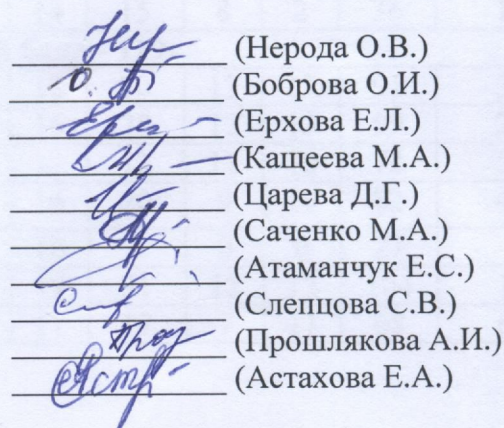 (Нерода О.В.)
(Боброва О.И.)
(Ерхова Е.Л.)
(Кащеева М.А.)
(Царева Д.Г.)
(Саченко М.А.)
(Атаманчук Е.С.)
(Слепцова С.В.)
(Прошлякова А.И.)
(Астахова Е.А.)